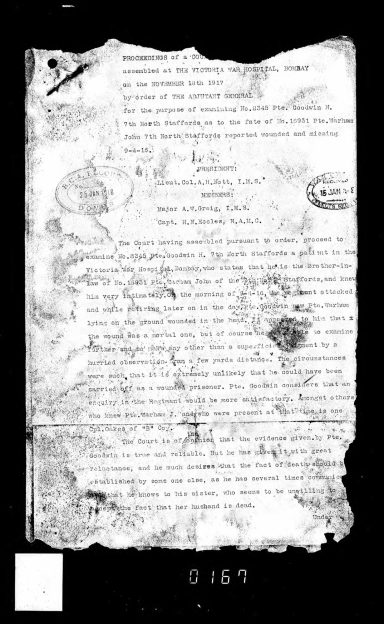 PROCEEDINGS of a
assembled at THE VICTORIA WAR HOSPITAL, BOMBAY
on the NOVEMBER 13th 1917
by order of THE ADJUTANT GENERAL
for the purpose of examining No.8345 Pte. Goodwin H.
7th North Staffords as to the fate of No.16931 Pte.Warham
John 7th North Staffords reported wounded and missing
9-4-16.
PRESIDENT:
Lieut.Col.A.H.Nott, I.M.S.
MEMBERS:
Major A.W.Greig, I.M.S.
Capt. H.N.Eccles, R.A.M.C.
The Court having assembled pursuant to order, proceed to
examine No.8345 Pte.Goodwin H. 7th North Staffords a patient in the
Victoria War Hospital,Bombay,who states that he is the Brother-in-
law of No.16931 Pte.Warham John of the Staffords,and knew
him very intimately. On the morning of attacked
and while retiring later on in the day,Pte.Goodwin saw Pte.Warham
lying on the ground wounded in the head. It appeared to him that
the wound was a mortal one, but of course he to examine
further and any other than a superficial by a
hurried observation from a few yards distance. The circumstances
were such that it is extremely unlikely that he could have been
carried off as a wounded prisoner. Pte. Goodwin considers that an
enquiry in the Regiment would be more satisfactory. Amongst others
who knew Pte.Warham J. and who were present at that time is one
Cpl.Oakes of "B" Coy.
The Court is of opinion that the evidence given by Pte.
Goodwin is true and reliable. But he has given it with great
reluctance, and he much desires that the fact of death should
established by some one else, as he has several times
that he knows to his sister, who seems to be unwilling to
the fact that her husband is dead.
25 JAN
0167